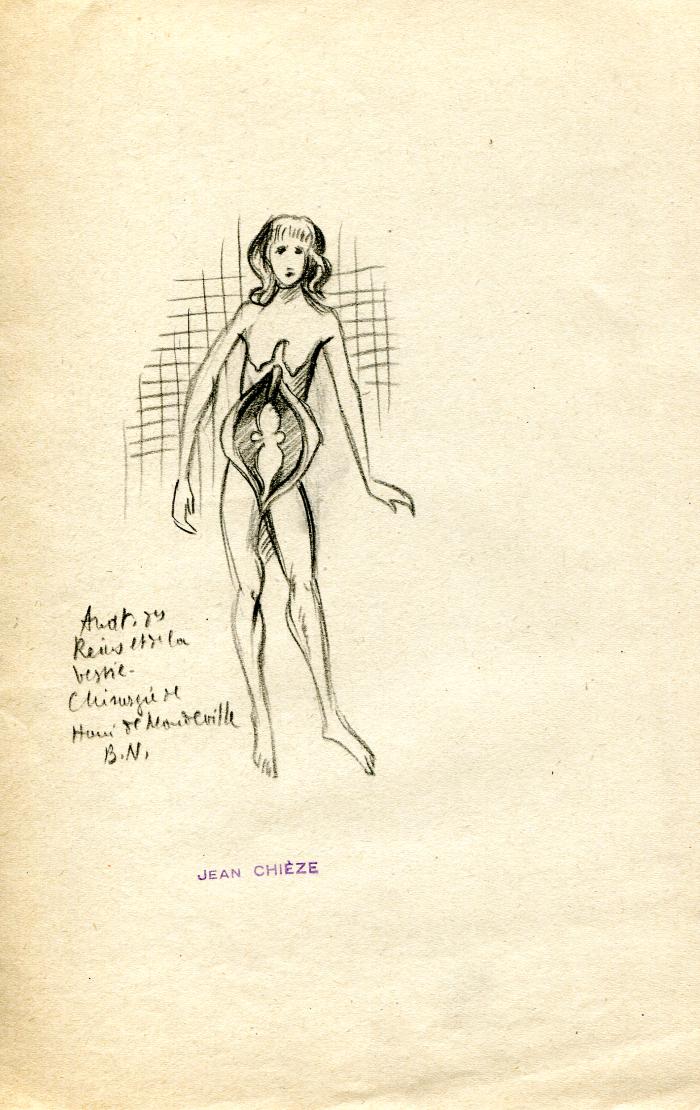 Anat. des
Reins et de la
vessie-
Chirurgie de
Henri de Mondeville
B.N.
JEAN CHIÈZE